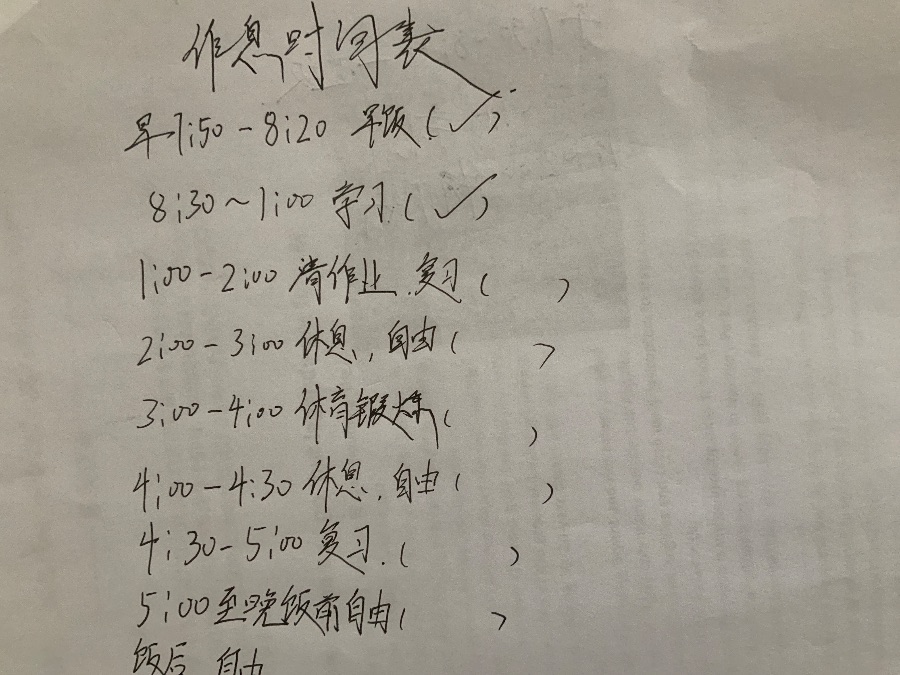 作息时间表
早7:50-8:20 早饭(✓)
8:30~1:00 学习(✓)
1:00-2:00 清作业、复习( )
2:00-3:00 休息,自由( )
3:00-4:00 体育锻炼( )
4:00-4:30 休息,自由( )
4:30-5:00 复习.( )
5:00至晚饭前自由( )
饭后 自由